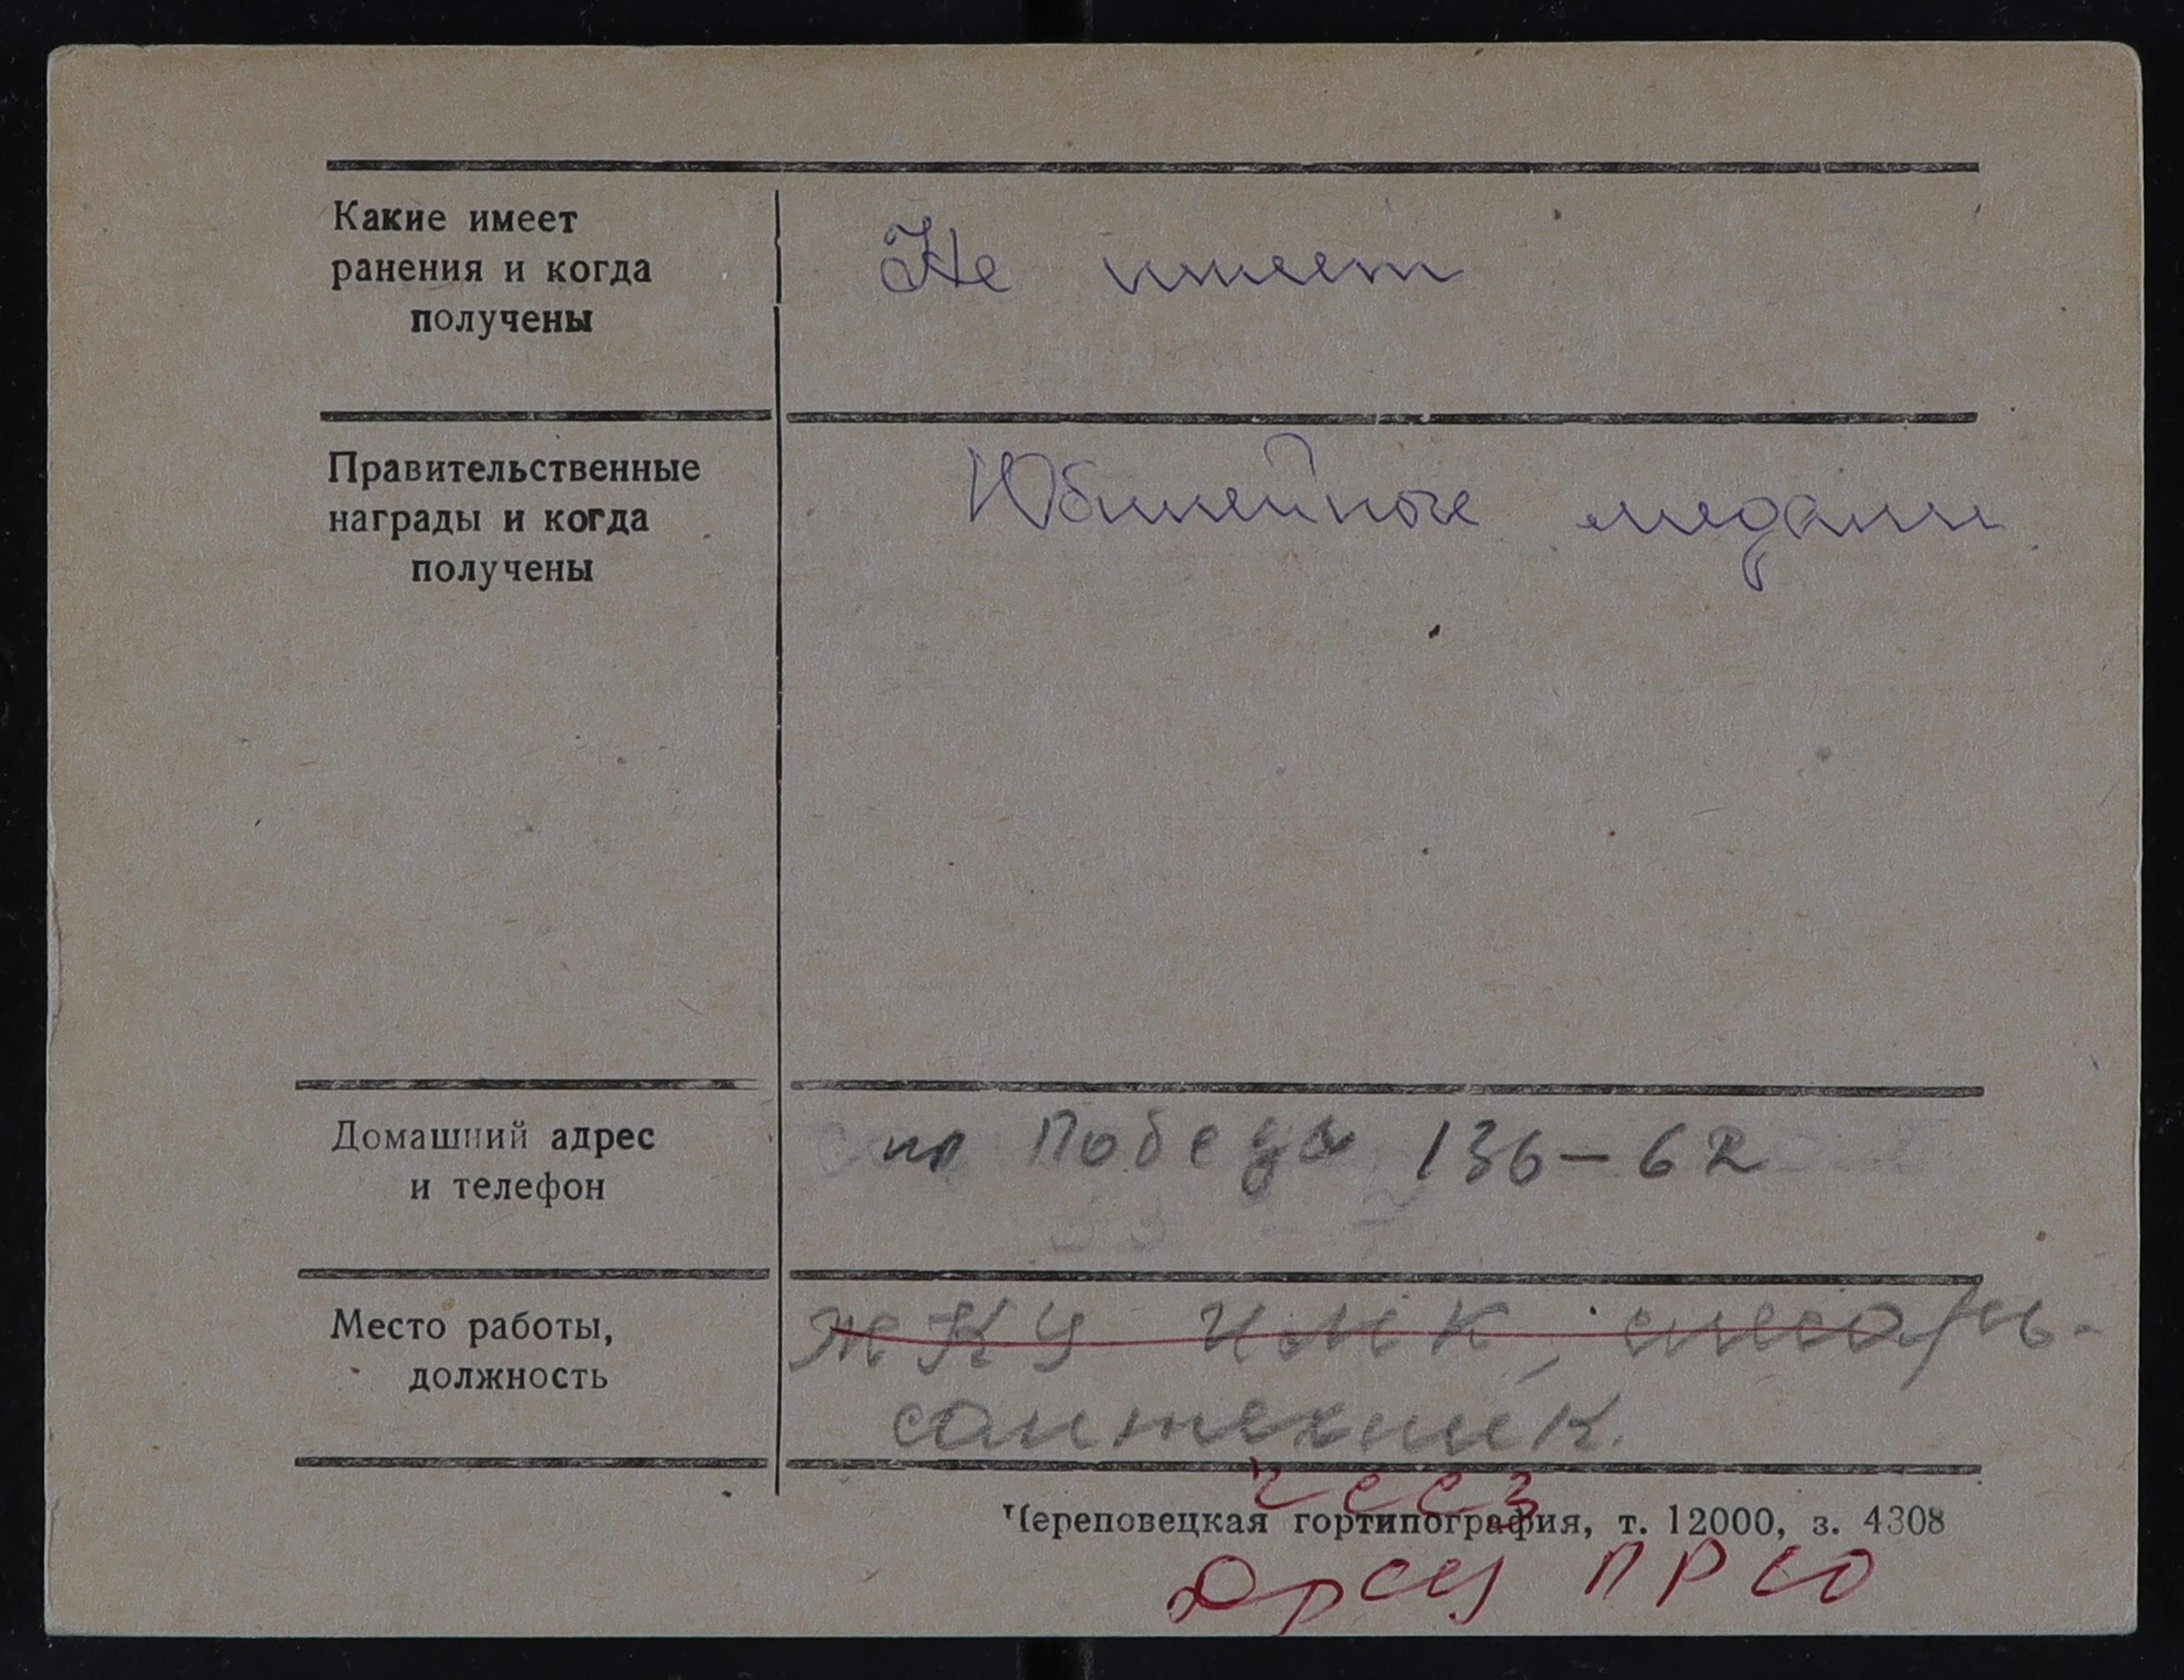 Какие имеет
ранения и когда
получены
Не имеет
Правительственные
награды и когда
получены
Юбилейные медали
Домашний адрес
и телефон
пр Победы 136-62
Место работы,
должность
ЖКУ ЧМК, слесарь-
сантехник.
Череповецкая гортипография, т. 12000, з. 4308